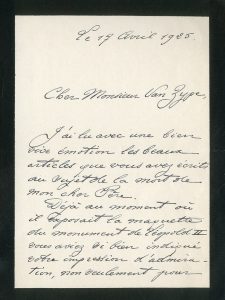 Le 17 Avril 1925.
Cher Monsieur Van Zype,
J'ai lu avec une bien
vive émotion les beaux
articles que vous avez écrits
au sujet de la mort de
mon cher Père.
Déjà au moment où
il exposait la maquette
du monument de Léopold II
vous aviez si bien indiqué
votre impression d'admira-
tion, non seulement pour